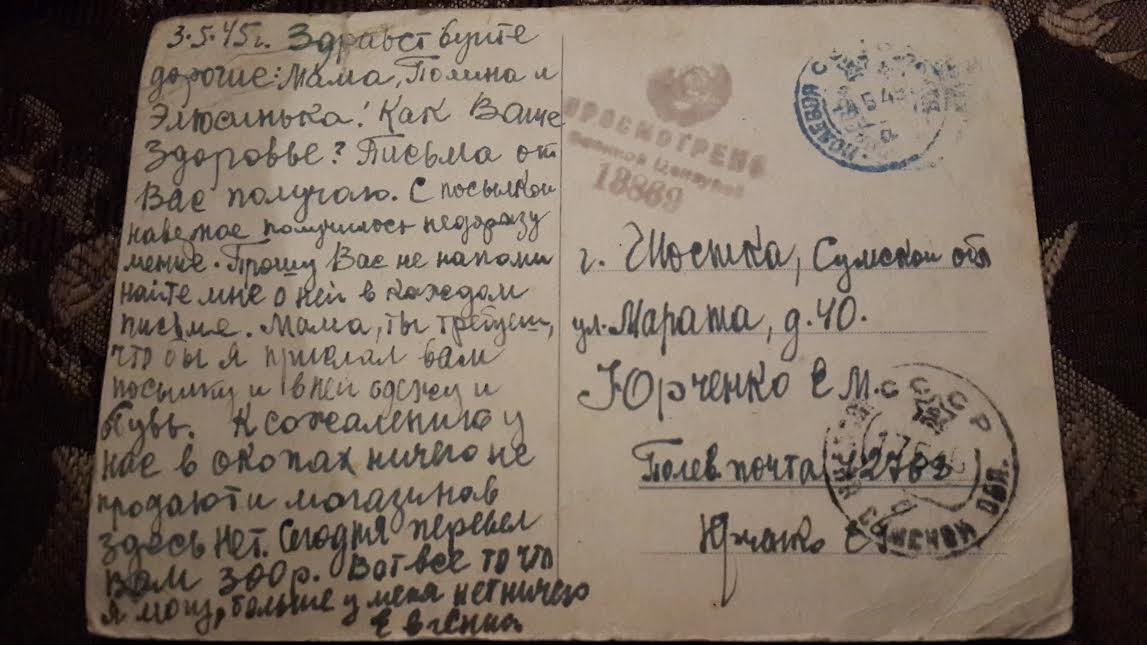 3.5.45г. Здравствуйте
дорогие: Мама, Полина и
Элюсинька! Как Ваше
Здоровье? Письма от
Вас получаю. С посылкой
наверное получилось недоразу
мение. Прошу Вас не напоми
найте мне о ней в каждом
письме. Мама, ты требуеш,
что бы я прислал вам
посылку и в ней одежду и
обувь. К сожалению у
нас в окопах ничего не
продают и магазинав
здесь нет. Сегодня перевел
Вам 300р. Вот все то что
я могу, больше у меня нет ничего
Евгений
ПРОСМОТРЕНО
Военной Цензурой
18889
ПОЛЕВАЯ
г. Шостка, Сумской обл
ул. Марата, д. 40.
Юрченко Е М.
Полев. почта 12763
СССР
СУМСКОЙ ОБЛ.